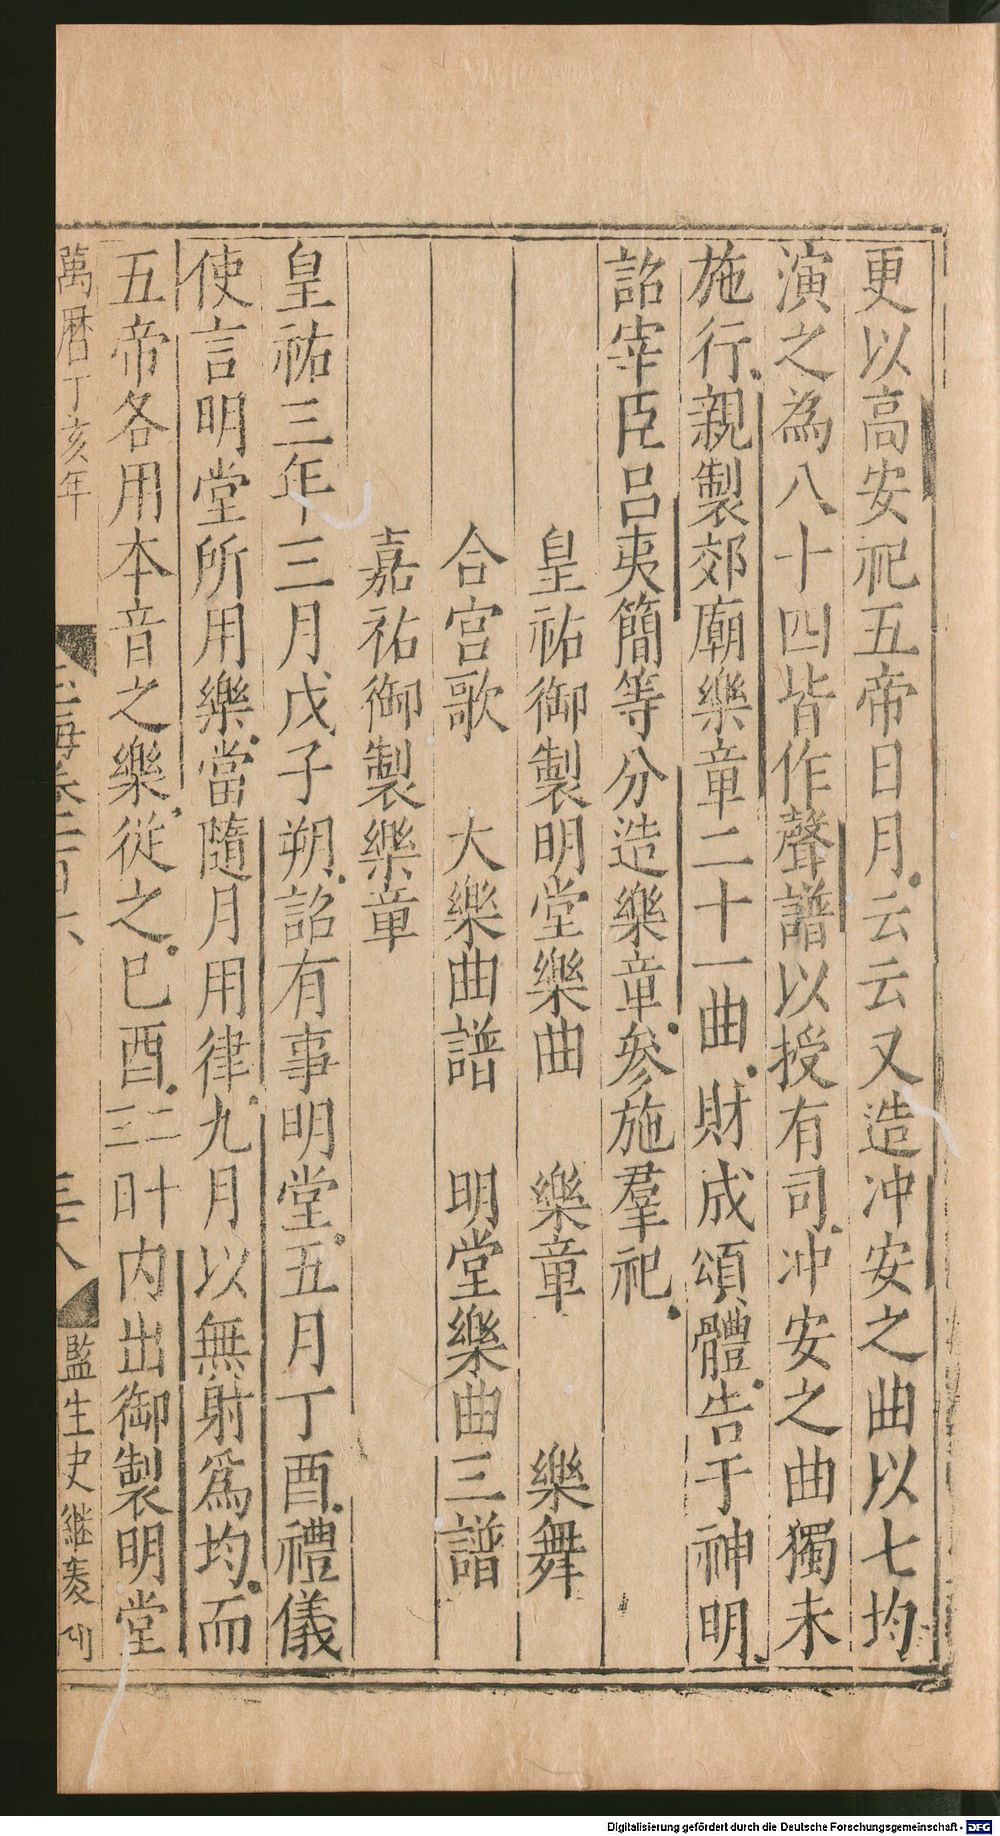 更以高安祀五帝日月云云又造冲安之曲以七均
演之為八十四皆作聲譜以授有司冲安之曲獨未
施行親製郊廟樂章二十一曲財成頌體告于神明
詔宰臣呂夷簡等分造樂章參施羣祀
皇祐御製明堂樂曲 樂章 樂舞
合宮歌 大樂曲譜 明堂樂曲三譜
嘉祐御製樂章
皇祐三年三月戊子朔詔有事明堂五月丁酉禮儀
使言明堂所用樂當隨月用律九月以無射爲均而
五帝各用本音之樂從之已酉二十三日内出御製明堂
萬暦丁亥年 玉海卷一百六 三十八 監生史継 刊
Digitalisierung gefördert durch die Deutsche Forschungsgemeinschaft - DFG